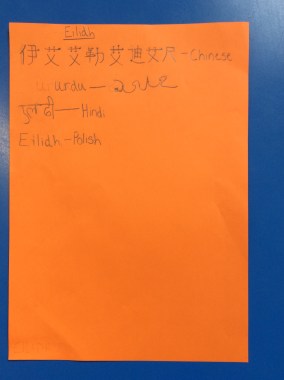 Eiliah
伊艾艾勒艾迪艾尺 - Chinese
Urdu -
- Hindi
Eiliah - Polish